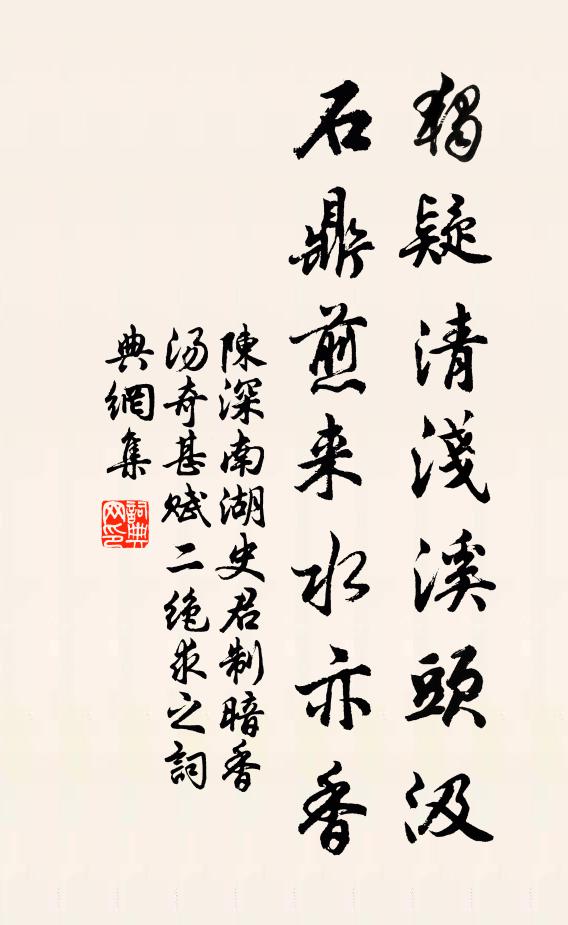 獨疑清淺溪頭汲
石鼎煎来水亦香
陳深南湖史君制暗香
汤奇甚赋二绝求之詞
典網集
詞典网印